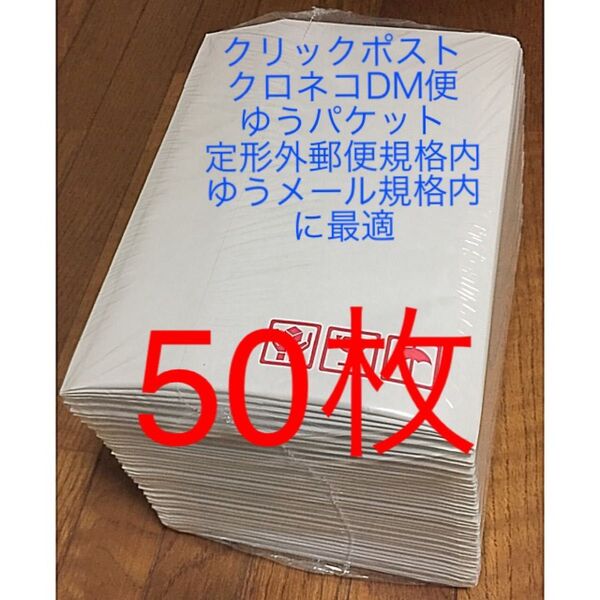 クリックポスト
クロネコDM便
ゆうパケット
定形外郵便規格内
ゆうメール規格内
に最適
50枚